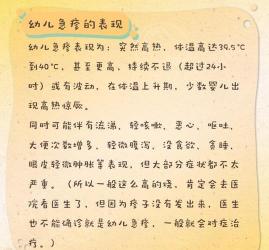 幼儿急疹的表现
幼儿急疹表现为：突然高热，体温高达39.5℃
到40℃，甚至更高，持续不退（超过24小
时）或有波动，在体温上升期，少数婴儿出
现高热惊厥。
同时可能伴有流涕，轻咳嗽，恶心，呕吐，
大便次数增多，轻微腹泻，没食欲，贪睡，
眼皮轻微肿胀等表现，但大部分症状都不太
严重。（所以一般这么高的烧，肯定会去医
院看医生了，但因为疹子没有发出来，医生
也不能确诊就是幼儿急疹，一般就会对症治
疗。）